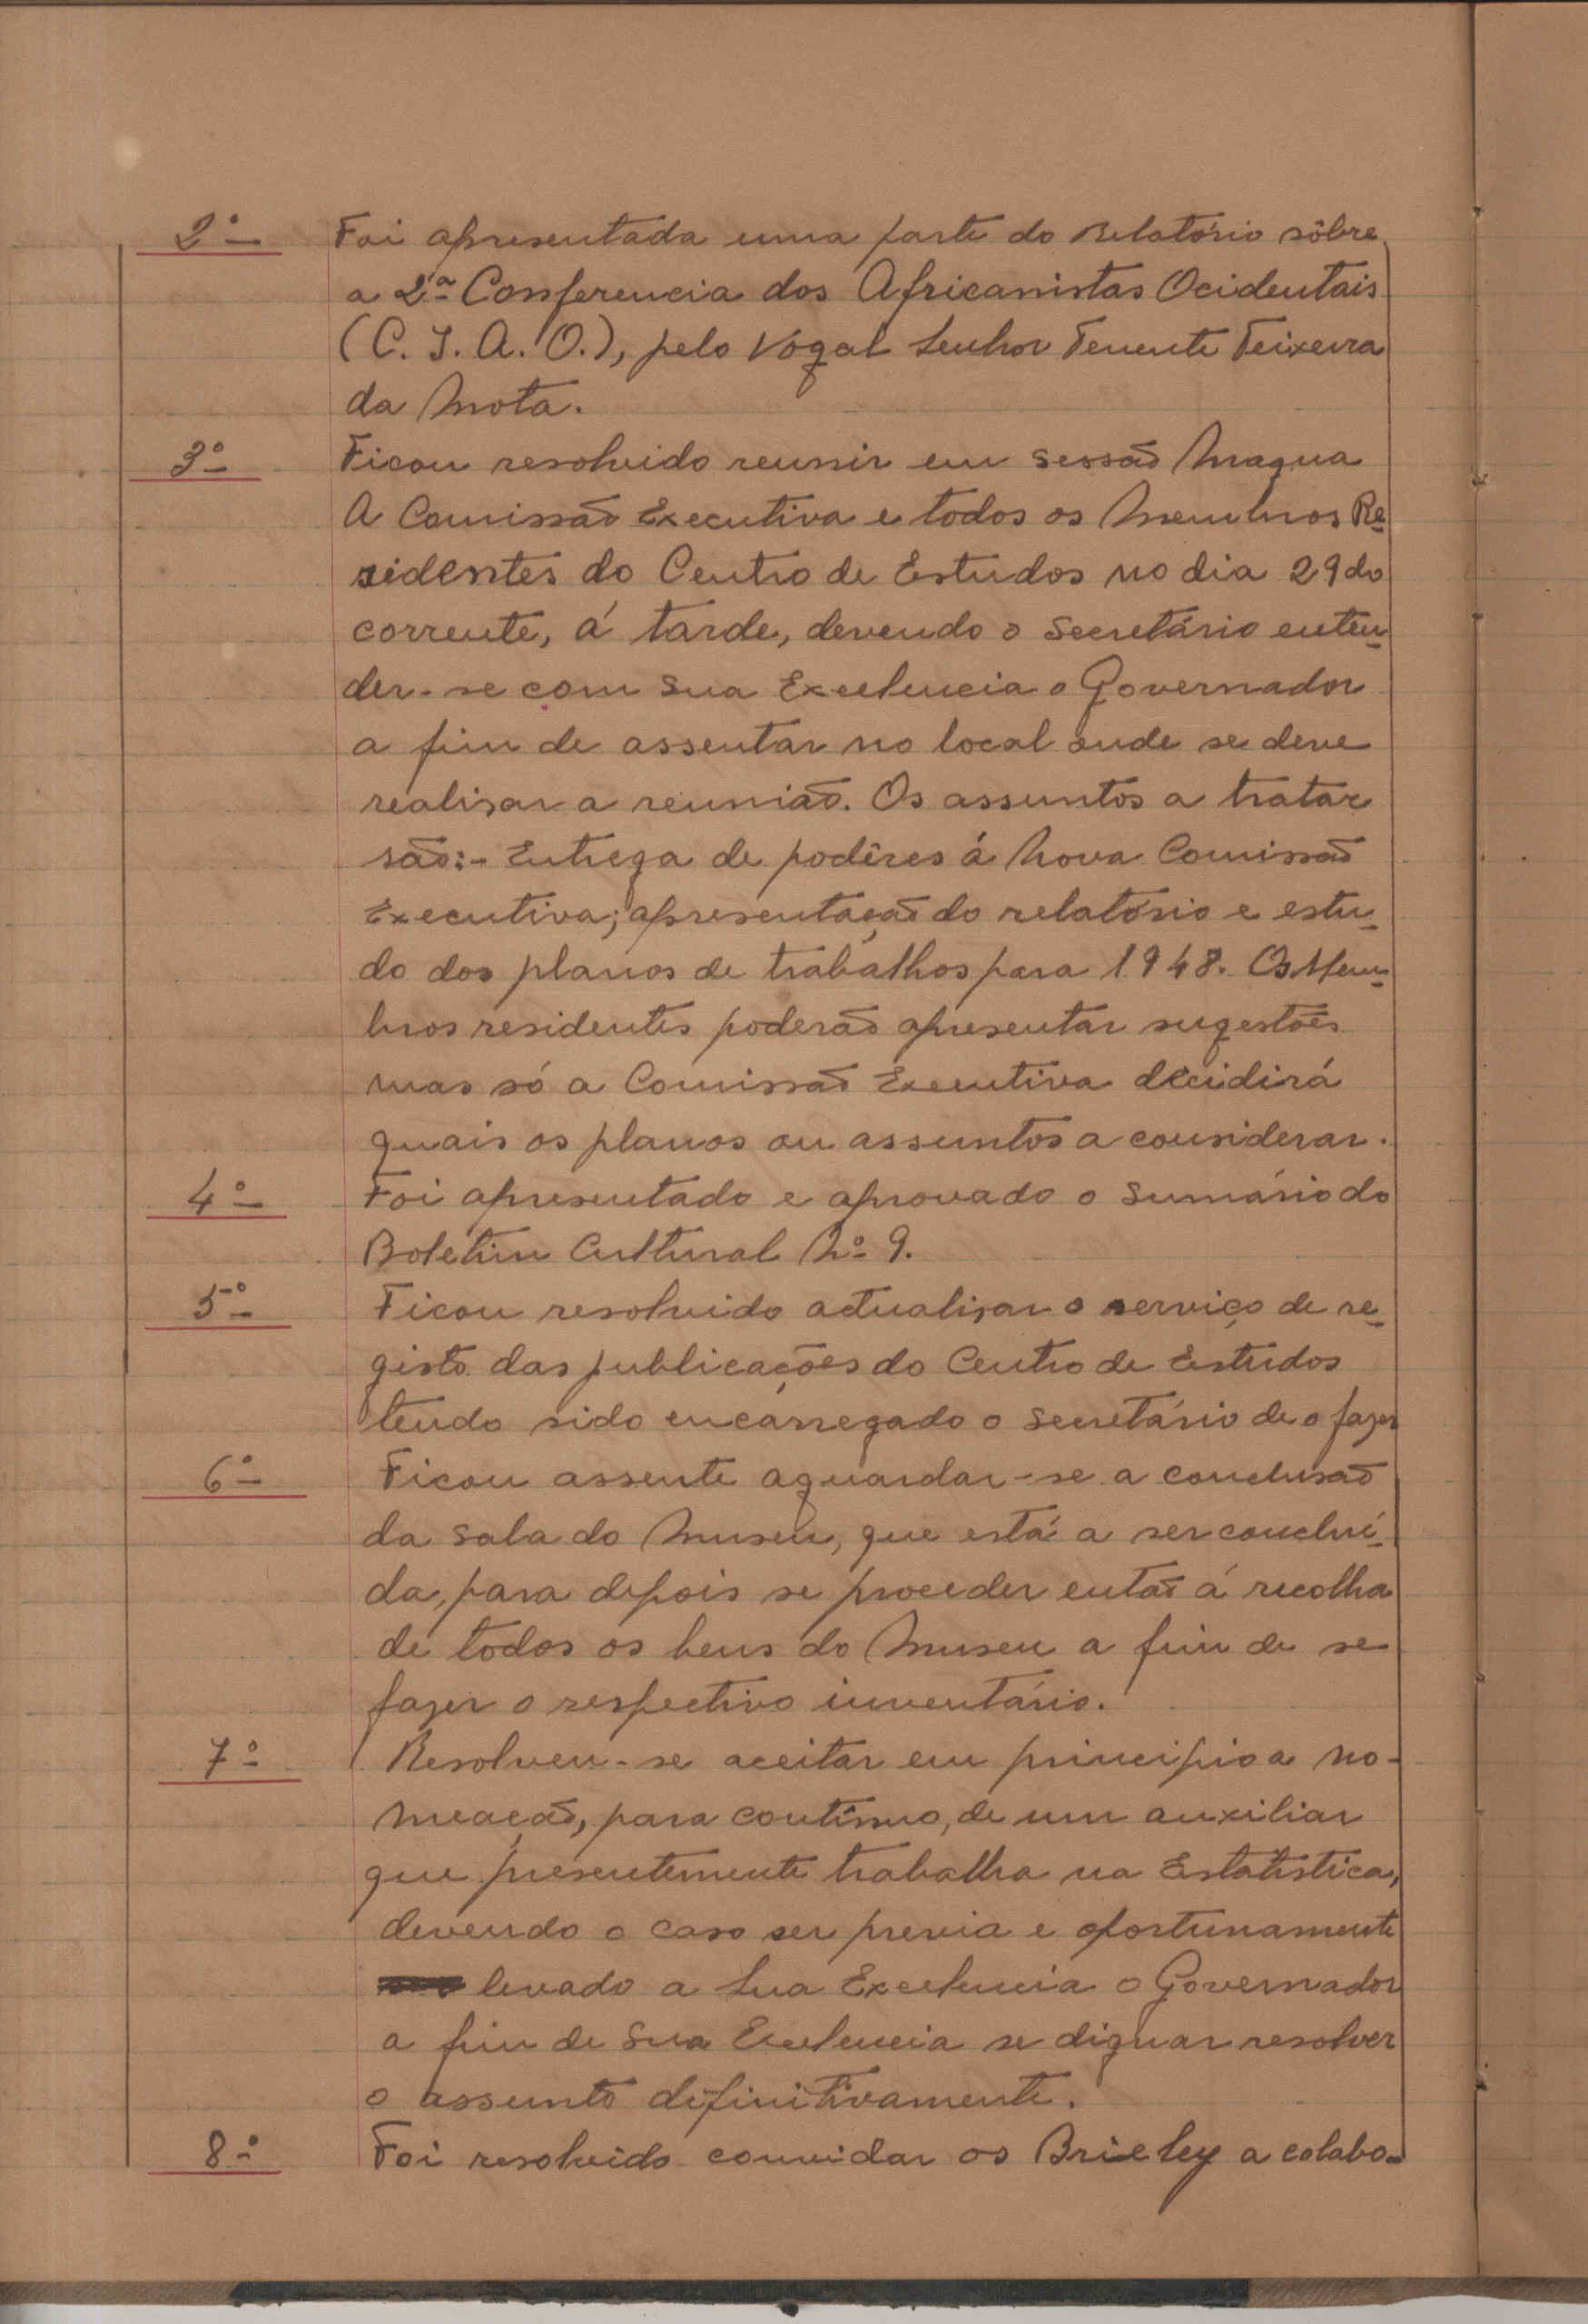 2º- Foi apresentada uma parte do Relatório sôbre
a 2ª Conferencia dos Africanistas Ocidentais
(C. I. A. O.), pelo Vogal Senhor Tenente Teixeira
da Mota.
3º- Ficou resolvido reunir em sessão Magna
A Comissão Executiva e todos os Membros Re-
sidentes do Centro de Estudos no dia 29 do
corrente, á tarde, devendo o Secretário enten-
der-se com Sua Excelencia o Governador
a fim de assentar no local onde se deve
realizar a reunião. Os assuntos a tratar
são:- Entrega de podêres á Nova Comissão
Executiva; apresentação do relatório e estu-
do dos planos de trabalhos para 1948. Os Mem-
bros residentes poderão apresentar sugestões
mas só a Comissão Executiva decidirá
quais os planos ou assuntos a considerar.
4º- Foi apresentado e aprovado o Sumário do
Boletim Cultural Nº 9.
5º- Ficou resolvido actualizar o serviço de re-
gisto das publicações do Centro de Estudos
tendo sido encarregado o Secretário de o fazer
6º- Ficou assente aguardar-se a conclusão
da sala do Museu, que está a ser concluí-
da, para depois se proceder então á recolha
de todos os bens do Museu a fim de se
fazer o respectivo inventário.
7º- Resolveu-se aceitar em principio a no-
meação, para contínuo, de um auxiliar
que presentemente trabalha na Estatistica,
devendo o caso ser previa e oportunamente
levado a Sua Excelencia o Governador
a fim de Sua Excelencia se dignar resolver
o assunto definitivamente.
8º- Foi resolvido convidar os Brieley a colabo-